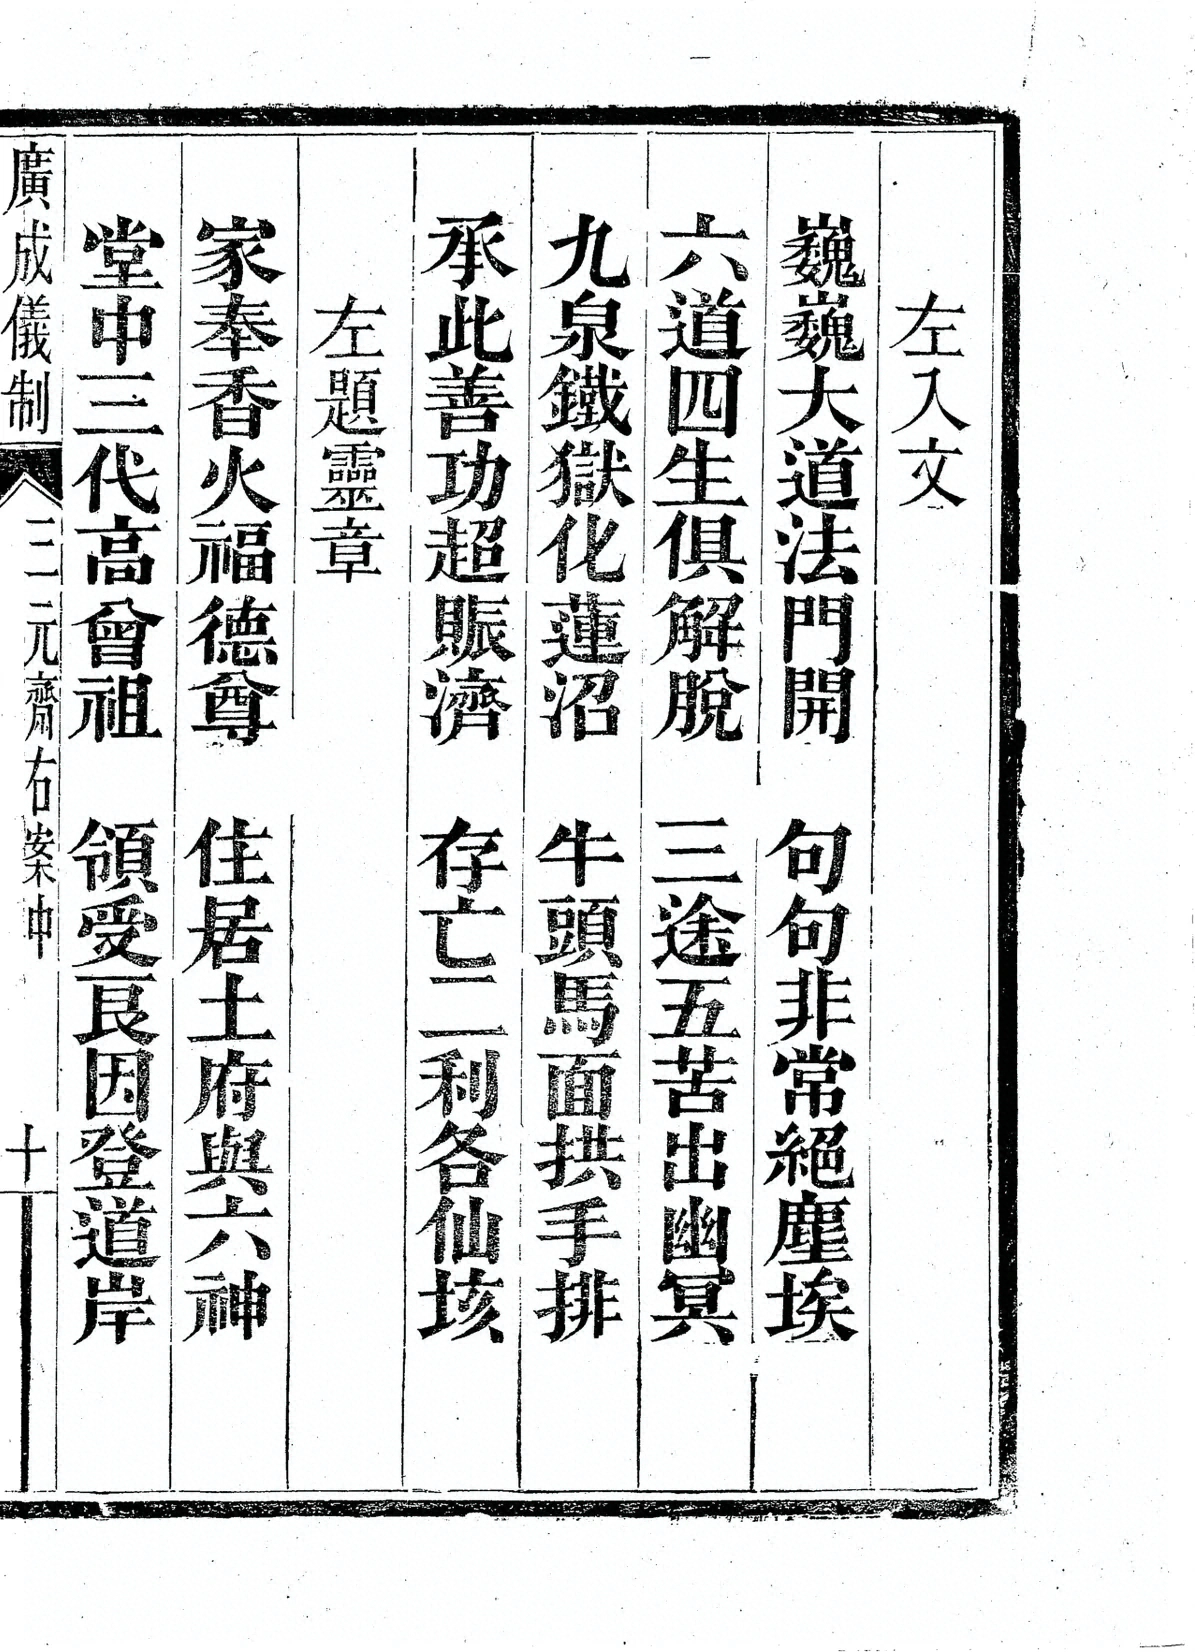 左入文
巍巍大道法門開　句句非常絕塵埃
六道四生俱解脫　三途五苦出幽冥
九泉鐵獄化蓮沼　牛頭馬面拱手排
承此善功超賑濟　存亡二利各仙垓
左題靈章
家奉香火福德尊　住居土府與六神
堂中三代高曾祖　領受艮因登道岸
廣成儀制　三元齋右案中　十